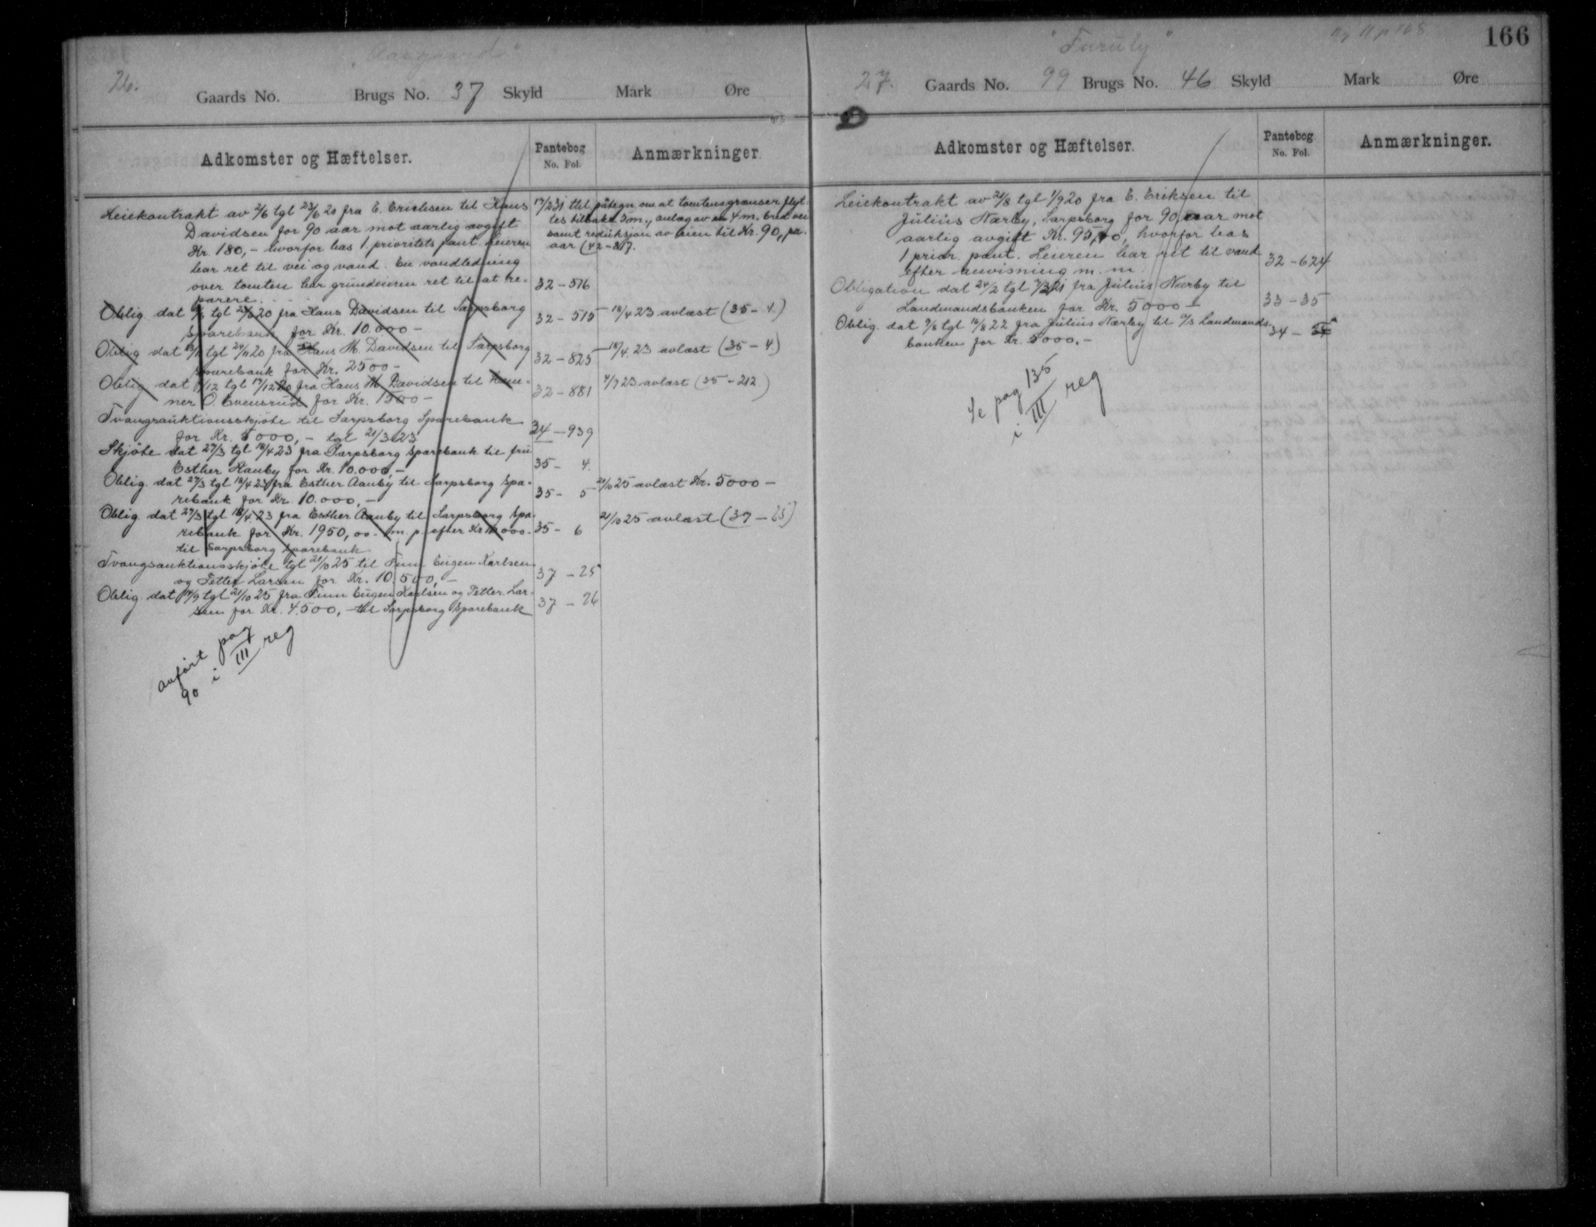 26.
Gaards No. Brugs No. 37 Skyld Mark Øre
Adkomster og Hæftelser. Pantebog No. Fol. Anmærkninger
Leiekontrakt av 2/6 tgl 23/6 20 fra E. Erichsen til Hans
Davidsen for 90 aar mot aarlig avgift
Kr. 180,- hvorfor has 1 prioritets pant. Leieren
har ret til vei og vand. En vandledning
over tomten har grundeieren ret til at re-
parere. 32-576
17/2 31 tlel. påtegn. om at tomtens grænser flyt-
tes tilbake 3m., anlæg av en 4 m. bred vei
samt reduksjon av leien til Kr. 90, pr.
aar (42-
Oblig dat tgl 20 fra Hans Davidsen til Sarpsborg
Sparebank for Kr. 10.000- 32-515 18/4 23 avlæst (35-4)
Oblig dat tgl 20 fra Hans M. Davidsen til Sarpsborg
Sparebank for Kr. 2500- 32-825 18/4 23 avlæst (35-4)
Oblig dat /12 tgl 17/12 20 fra Hans M. Davidsen til
ner O. Evensrud for Kr. 1500- 32-881 4/7 23 avlæst (35-212)
Tvangsauktionsskjøte til Sarpsborg Sparebank
for Kr. 5000,- tgl 21/3 23 34-939
Skjøte dat 27/3 tgl 18/4 23 fra Sarpsborg Sparebank til fru
Esther Aanby for Kr. 10.000,- 35-4.
Oblig. dat 27/3 tgl 18/4 23 fra Esther Aanby til Sarpsborg Spa-
rebank for Kr 10.000,- 35-5 21/10 25 avlæst Kr. 5000-
Oblig dat 27/3 tgl 18/4 23 fra Esther Aanby til Sarpsborg Spa-
rebank for Kr. 1950,00- m. p. efter Kr 10.000-
til Sarpsborg Sparebank 35-6 21/10 25 avlæst (37-25)
Tvangsauktionsskjøte tgl 21/10 25 til Finn Eugen Karlsen
og Petter Larsen for Kr. 10.500,- 37-25
Oblig dat 14/9 tgl 21/10 25 fra Finn Eugen Karlsen og Petter Lar-
sen for Kr. 4.500,- til Sarpsborg Sparebank 37-26
anført pag
90 i III reg
166
"Furuly"
27. Gaards No. 99 Brugs No. 46 Skyld Mark Øre
Adkomster og Hæftelser. Pantebog No. Fol. Anmærkninger.
Leiekontrakt av 21/8 tgl 1/9 20 fra E. Eriksen til
Julius Nærby, Sarpsborg for 90 aar mot
aarlig avgift Kr. 95,00, hvorfor has
1 prior. pant. Leieren har ret til vand
efter anvisning m. m. 32-624
Obligation dat 24/2 tgl 21 fra Julius Nærby til
Landmandsbanken for Kr. 5000- 33-35
Oblig. dat 9/8 tgl 16/8 22 fra Julius Nærby til Landmands-
banken for Kr. 5000.- 34-
Se pag 136
i III reg